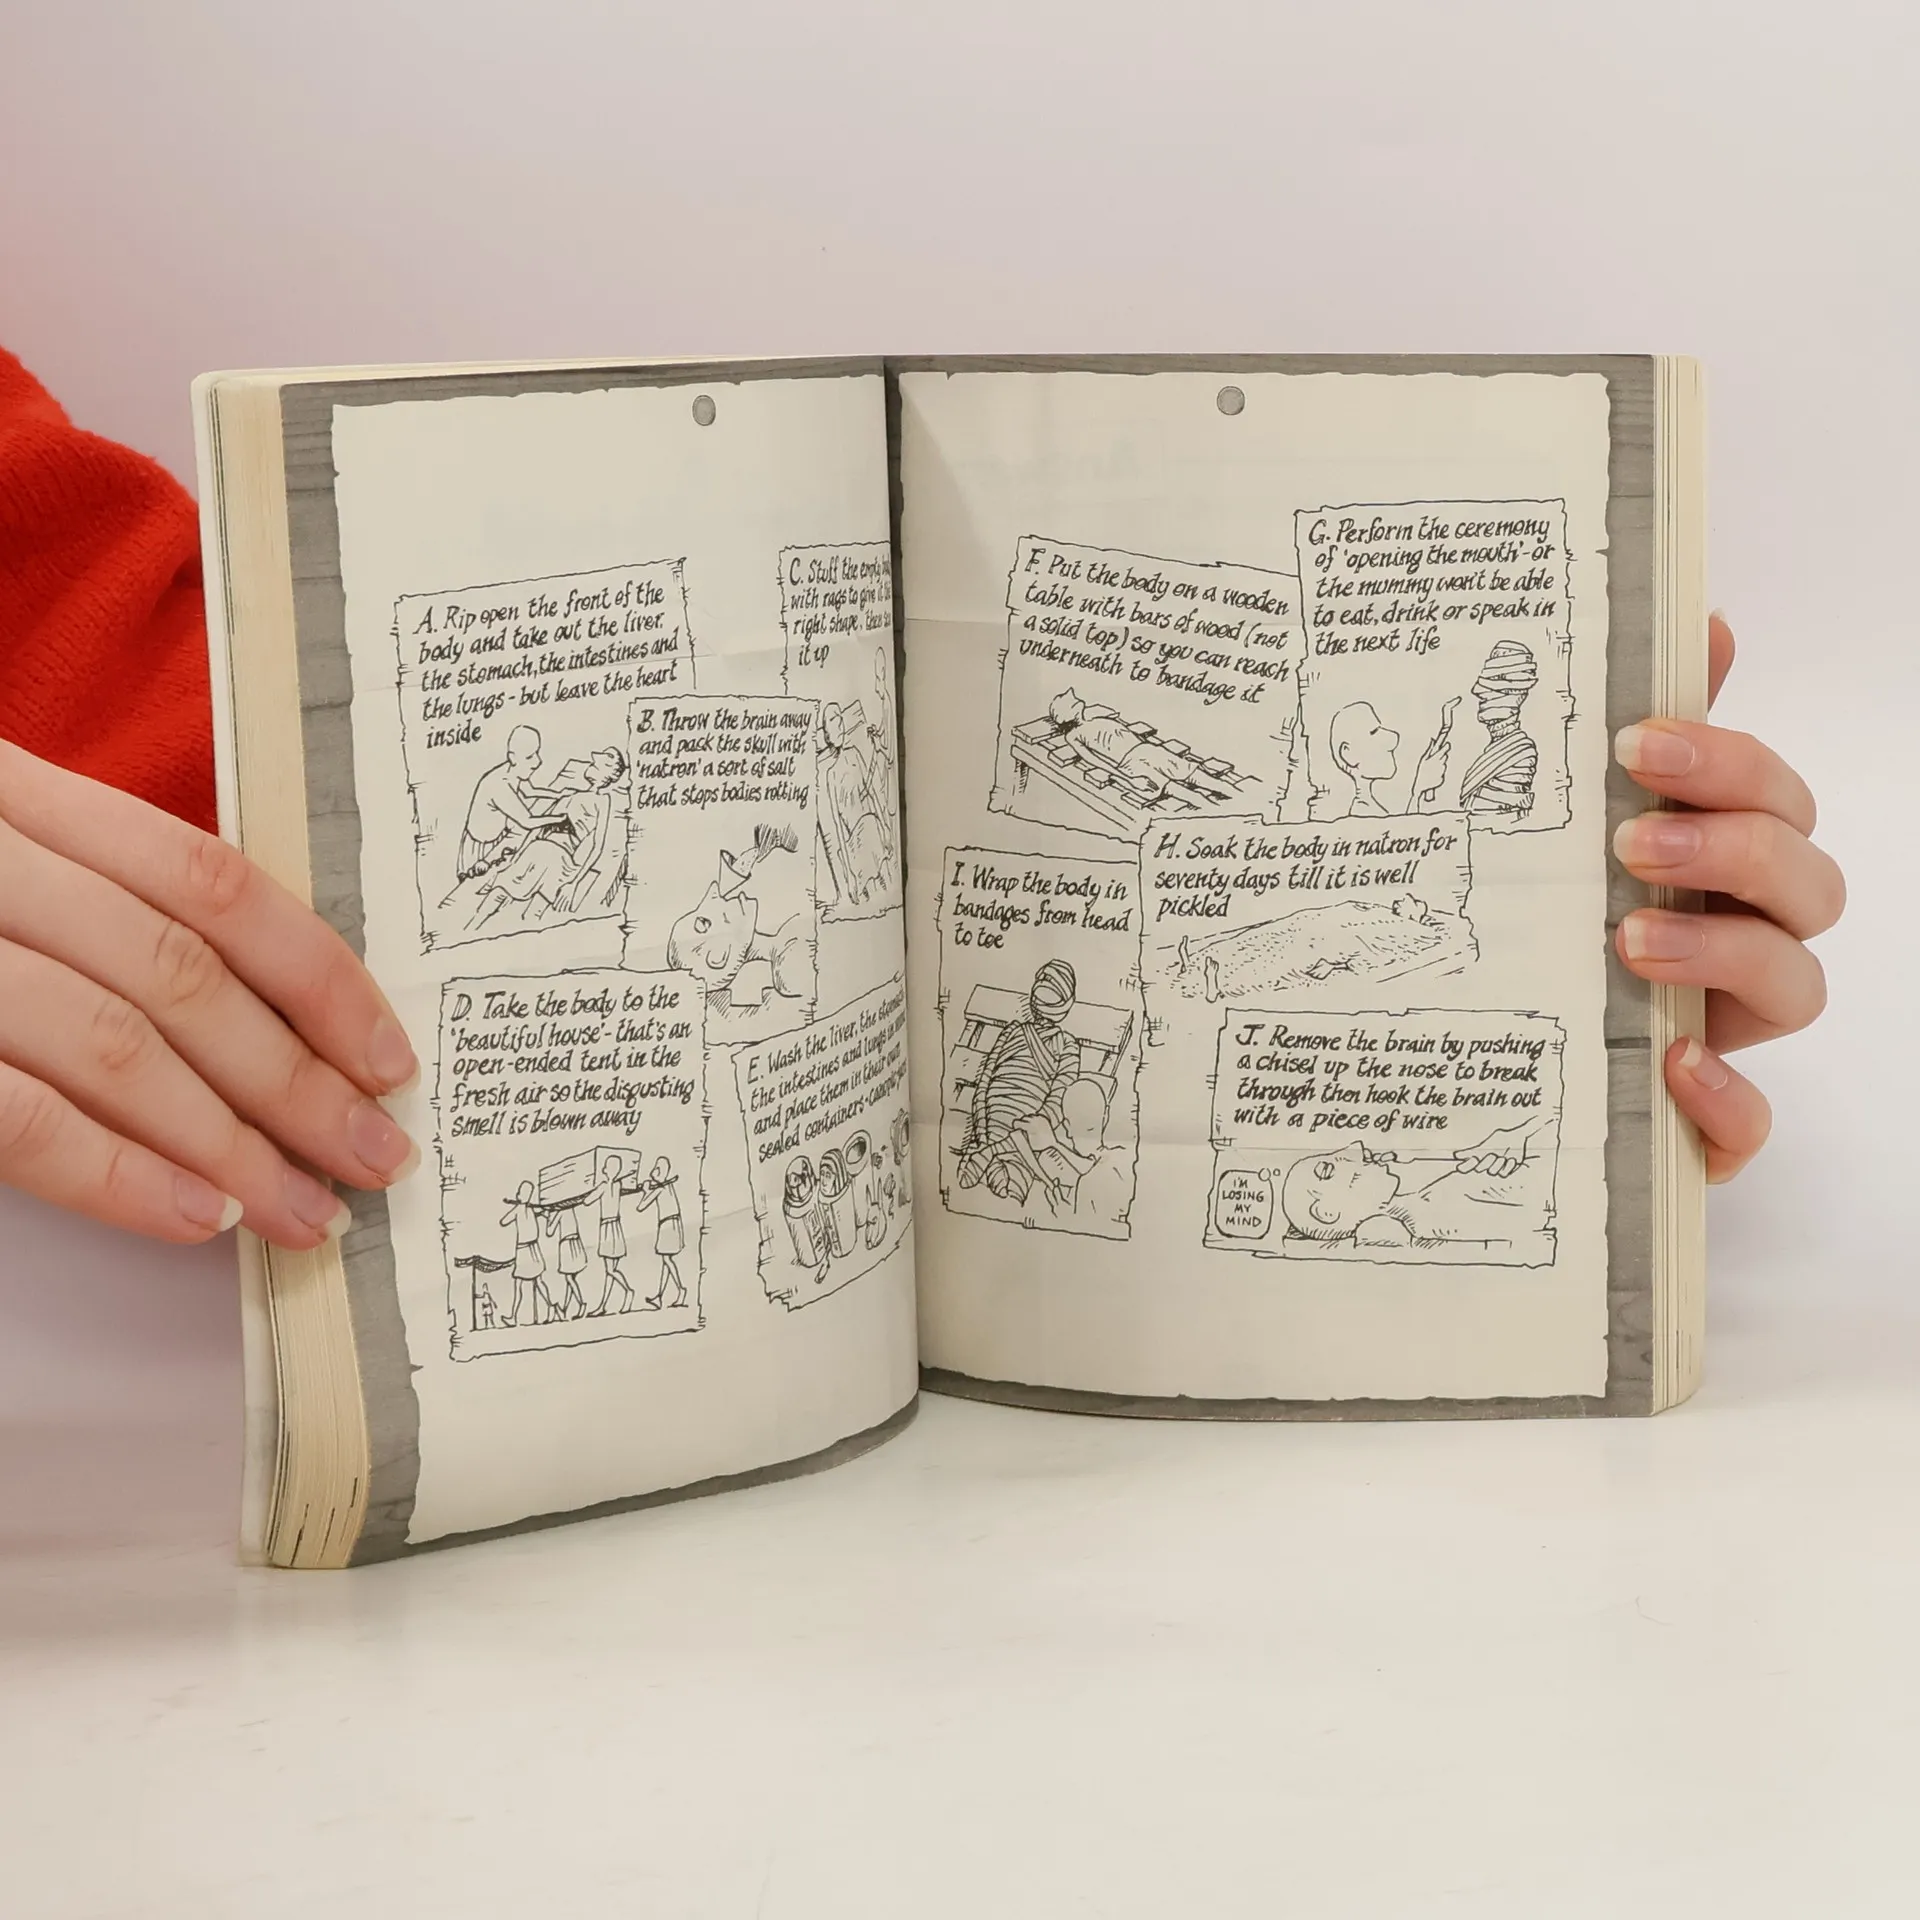 A. Rip open the front of the
body and take out the liver,
the stomach, the intestines and
the lungs - but leave the heart
inside
B. Throw the brain away
and pack the skull with
'natron' a sort of salt
that stops bodies rotting
C. Stuff the empty
with rags to give it the
right shape, then
it up
D. Take the body to the
'beautiful house' - that's an
open-ended tent in the
fresh air so the disgusting
smell is blown away
E. Wash the liver, the stomach
the intestines and lungs in
and place them in their own
sealed containers - canopic jars
F. Put the body on a wooden
table with bars of wood (not
a solid top) so you can reach
underneath to bandage it
G. Perform the ceremony
of 'opening the mouth' - or
the mummy won't be able
to eat, drink or speak in
the next life
H. Soak the body in natron for
seventy days till it is well
pickled
I. Wrap the body in
bandages from head
to toe
J. Remove the brain by pushing
a chisel up the nose to break
through then hook the brain out
with a piece of wire
I'M
LOSING
MY
MIND